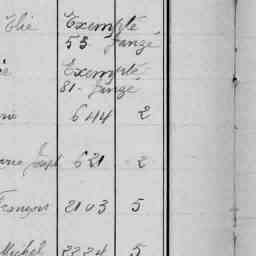 Elie Exempté
53 Janzé
ie Exempté
81 - Janzé
rie 644 2
Joseph 621 2
François 2103 5
Michel 2224 5